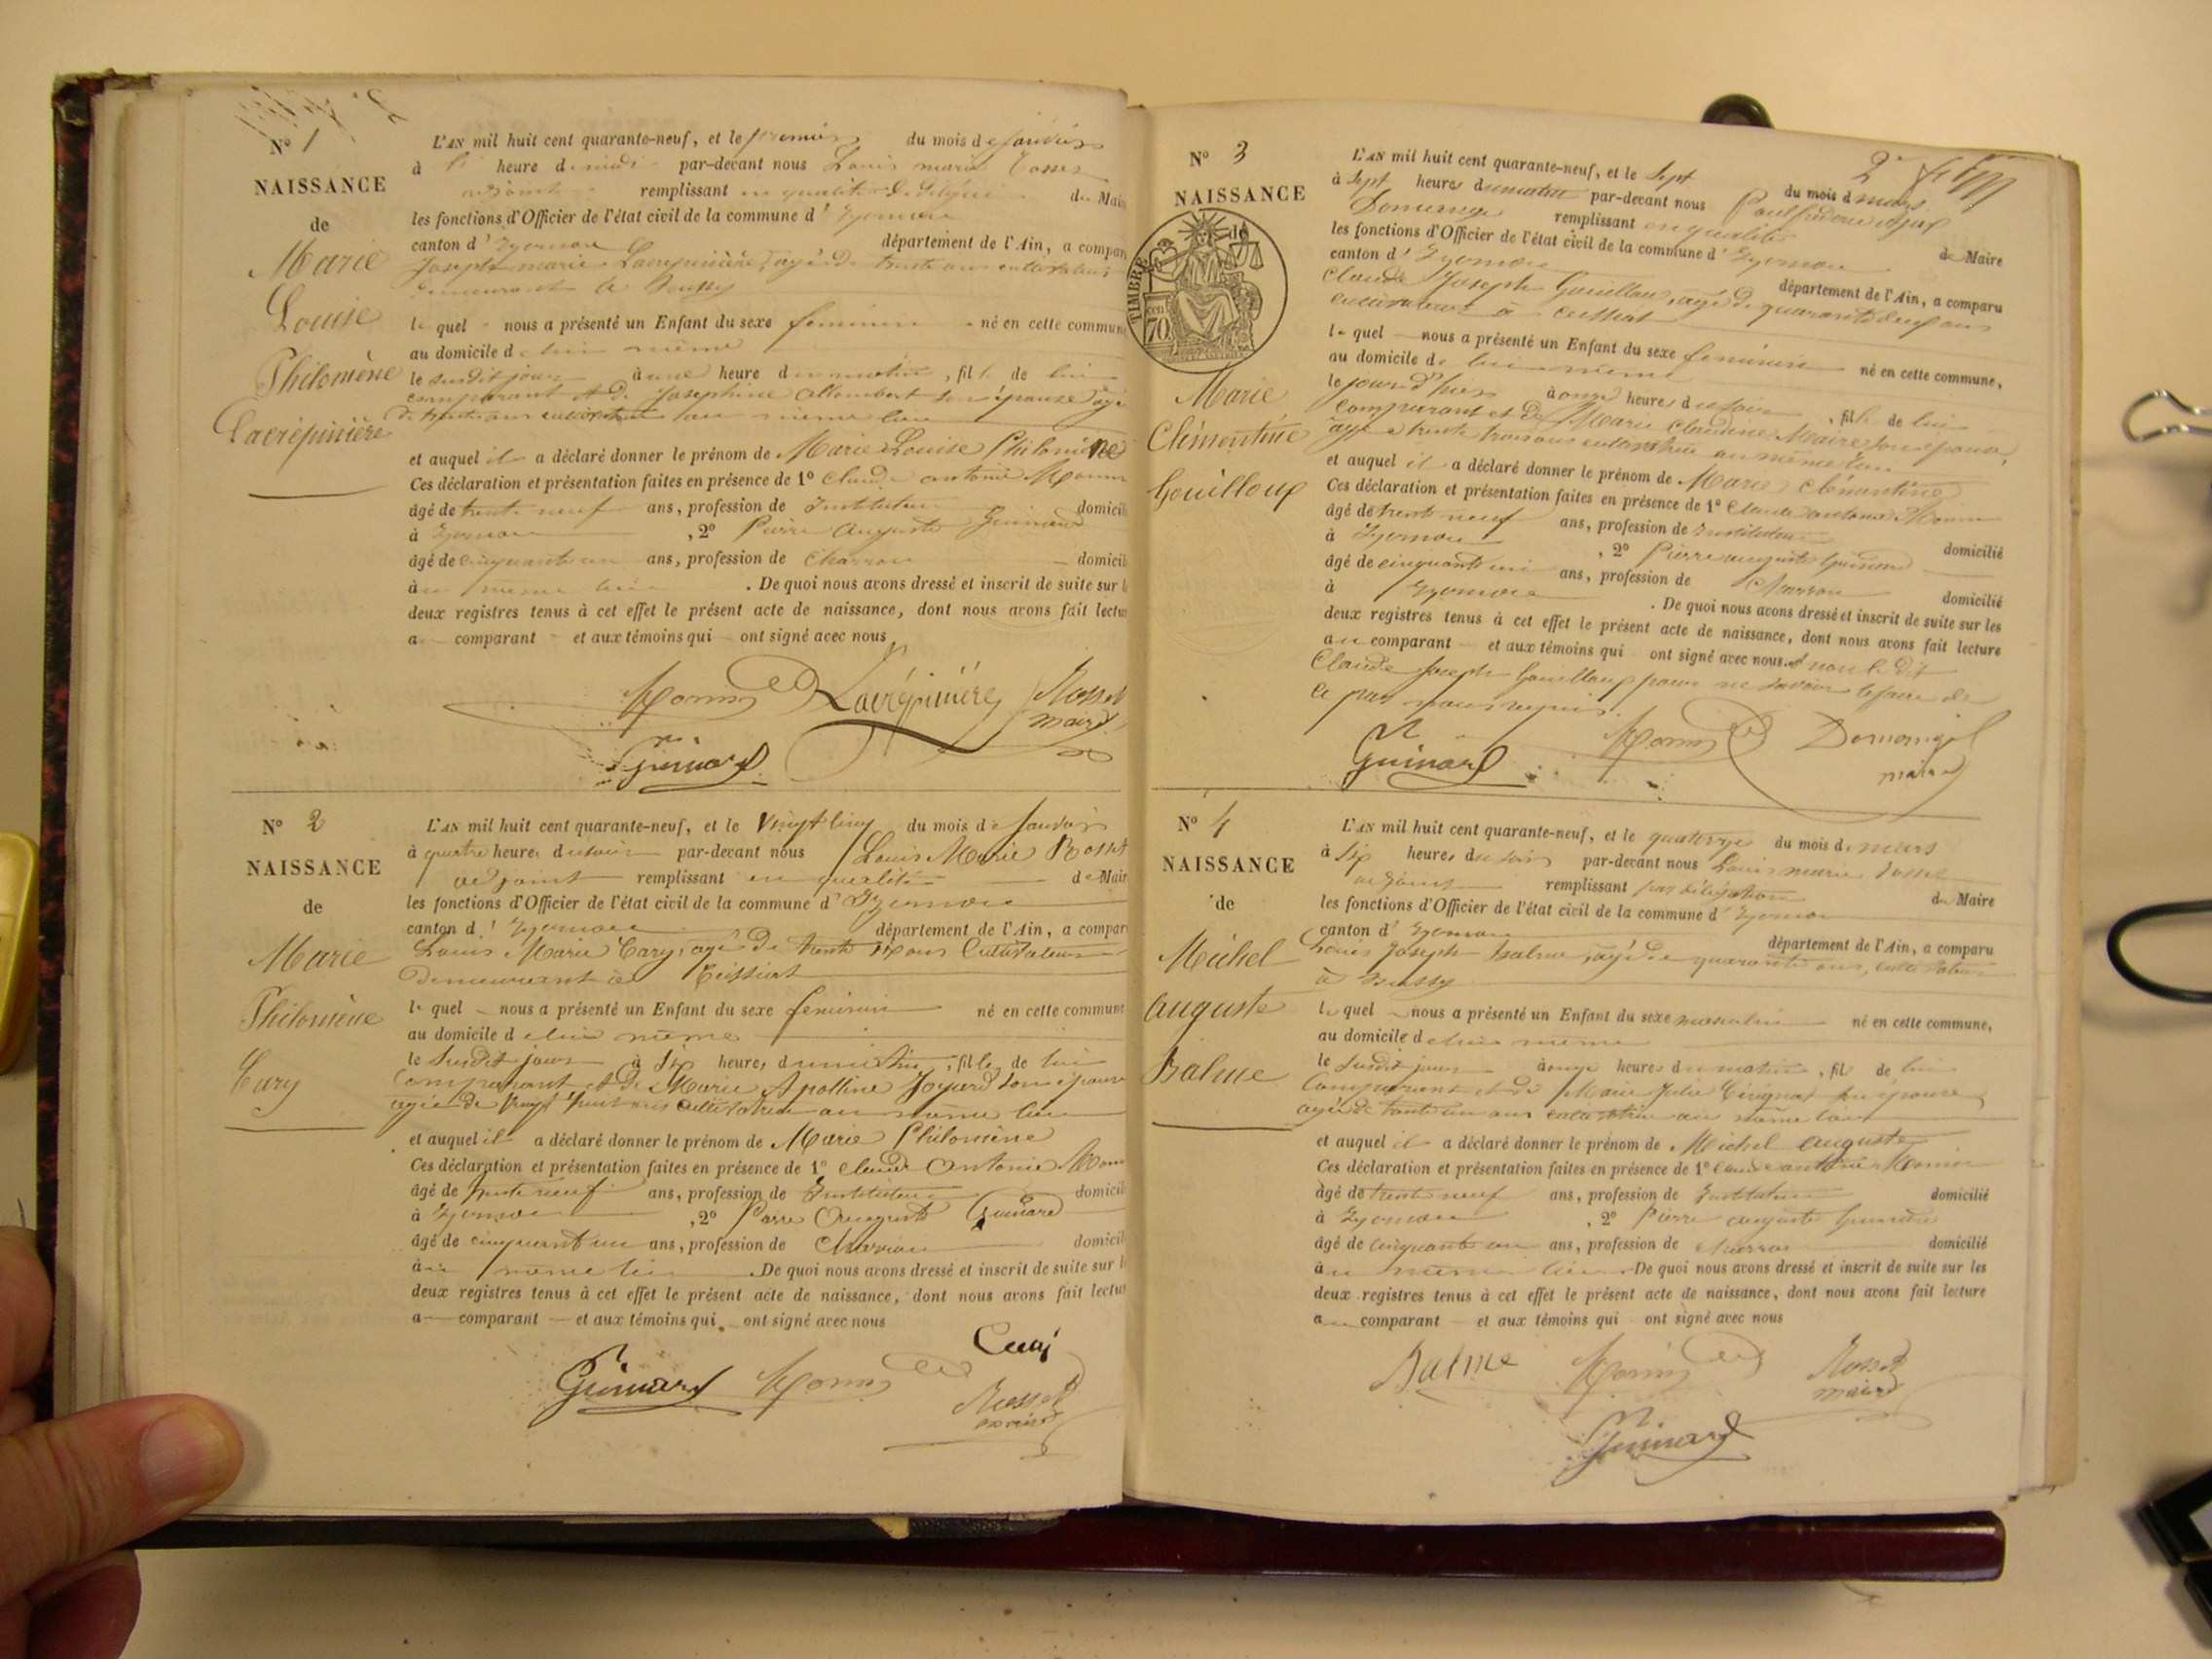 N° 1
NAISSANCE
de
Marie
Louise
Philomène
Lacrépinière
L'AN mil huit cent quarante-neuf, et le premier du mois de janvier
à heure de midi par-devant nous Louis marie
adjoint remplissant en qualité de délégué du Mai
les fonctions d'Officier de l'état civil de la commune d' Izernore
canton d' Izernore département de l'Ain, a compar
Joseph marie Lacrepinière, agé de trente ans cultivateur
demeurant à Bussy
le quel nous a présenté un Enfant du sexe féminin né en cette commune
au domicile de lui même
le susdit jour à une heure du matin, fille de lui
comparant et de Josephine Allombert son épouse agée
de trente ans cultivatrice au même lieu
et auquel il a déclaré donner le prénom de Marie Louise Philomène
Ces déclaration et présentation faites en présence de 1° Claude antoine Monin
âgé de trente neuf ans, profession de Instituteur domicil
à Izernore , 2° Pierre Auguste Guinard
âgé de cinquante un ans, profession de Charron domicil
à u même lieu . De quoi nous avons dressé et inscrit de suite sur l
deux registres tenus à cet effet le présent acte de naissance, dont nous avons fait lectu
au comparant et aux témoins qui ont signé avec nous
Monin Lacrépinière Rosset
maire
Guinard
N° 2
NAISSANCE
de
Marie
Philomène
Cary
L'AN mil huit cent quarante-neuf, et le vingt cinq du mois de janvier
à quatre heures du soir par-devant nous Louis Marie Rosset
adjoint remplissant en qualité de Mair
les fonctions d'Officier de l'état civil de la commune d' Izernore
canton d' Izernore département de l'Ain, a compar
Louis Marie Cary, agé de trente six ans Cultivateur
demeurant à Ceissiat
le quel nous a présenté un Enfant du sexe féminin né en cette commune
au domicile de lui même
le susdit jour à six heures du matin, fille de lui
comparant et de Marie Apolline Joyard son épouse
agée de vingt huit ans cultivatrice au même lieu
et auquel il a déclaré donner le prénom de Marie Philomène
Ces déclaration et présentation faites en présence de 1° Claude Antoine Monin
âgé de trente neuf ans, profession de Instituteur domicil
à Izernore , 2° Pierre Auguste Guinard
âgé de cinquante un ans, profession de Charron domicil
à u même lieu . De quoi nous avons dressé et inscrit de suite sur l
deux registres tenus à cet effet le présent acte de naissance, dont nous avons fait lectu
au comparant et aux témoins qui ont signé avec nous
Cary
Guinard Monin Rosset
maire
2e
N° 3
NAISSANCE
de
TIMBRE
70 cen
Marie
Clémentine
Gouilloux
L'AN mil huit cent quarante-neuf, et le sept du mois de mars
à sept heures du matin par-devant nous Paul
Domenge remplissant en qualité de Maire
les fonctions d'Officier de l'état civil de la commune d' Izernore
canton d' Izernore département de l'Ain, a comparu
Claude Joseph Gouilloux, agé de quarante deux ans
cultivateur à
le quel nous a présenté un Enfant du sexe féminin né en cette commune,
au domicile de lui même
le jour d'hier à onze heures du soir, fille de lui
comparant et de Marie Claudine Maire son épouse,
agée de trente trois ans cultivatrice au même lieu
et auquel il a déclaré donner le prénom de Marie Clémentine
Ces déclaration et présentation faites en présence de 1° Claude antoine Monin
âgé de trente neuf ans, profession de Instituteur domicilié
à Izernore , 2° Pierre auguste Guinard
âgé de cinquante un ans, profession de Charron domicilié
à Izernore . De quoi nous avons dressé et inscrit de suite sur les
deux registres tenus à cet effet le présent acte de naissance, dont nous avons fait lecture
au comparant et aux témoins qui ont signé avec nous et non le dit
Claude Joseph Gouilloux pour ne savoir le faire de
ce par nous requis.
Guinard Monin Domenge
maire
N° 4
NAISSANCE
de
Michel
Auguste
Balme
L'AN mil huit cent quarante-neuf, et le quatorze du mois de mars
à six heures du soir par-devant nous Louis marie Rosset
adjoint remplissant par délégation du Maire
les fonctions d'Officier de l'état civil de la commune d' Izernore
canton d' Izernore département de l'Ain, a comparu
Louis Joseph Balme, agé de quarante ans, cultivateur
à Bussy
le quel nous a présenté un Enfant du sexe masculin né en cette commune,
au domicile de lui même
le susdit jour à onze heures du matin, fils de lui
comparant et de Marie Julie son épouse
agée de trente un ans cultivatrice au même lieu
et auquel il a déclaré donner le prénom de Michel auguste
Ces déclaration et présentation faites en présence de 1° Claude antoine Monin
âgé de trente neuf ans, profession de Instituteur domicilié
à Izernore , 2° Pierre auguste Guinard
âgé de cinquante un ans, profession de Charron domicilié
à u même lieu . De quoi nous avons dressé et inscrit de suite sur les
deux registres tenus à cet effet le présent acte de naissance, dont nous avons fait lecture
au comparant et aux témoins qui ont signé avec nous
Balme Monin Rosset
maire
Guinard